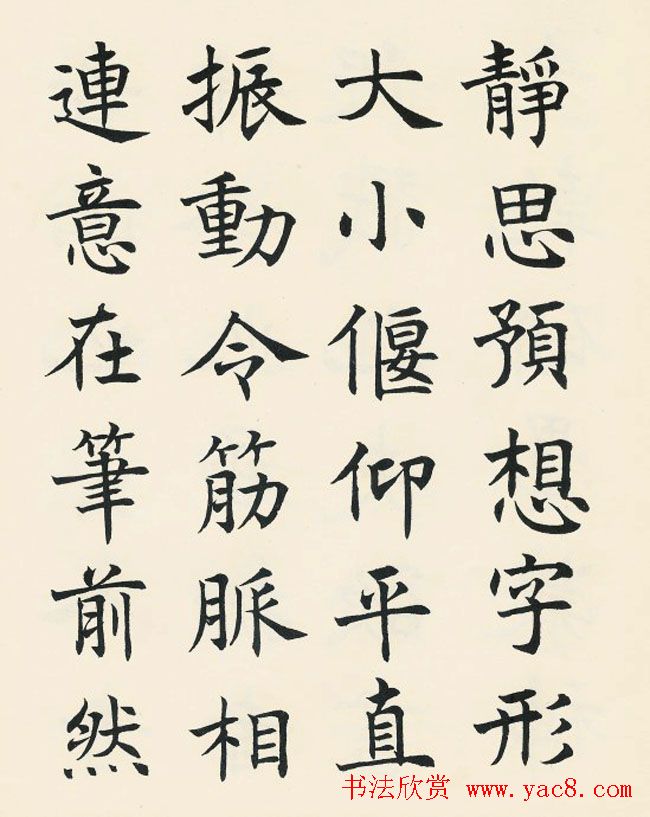 靜思預想字形
大小偃仰平直
振動令筋脈相
連意在筆前然
书法欣赏 www.yac8.com